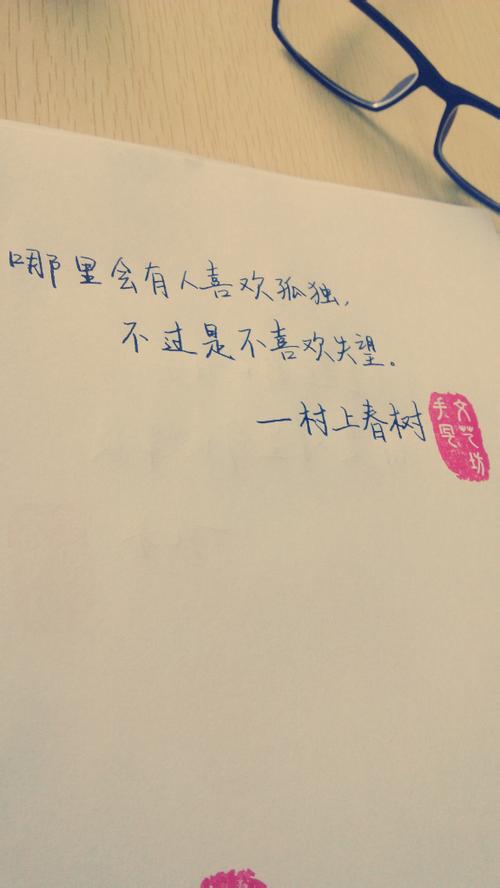 哪里会有人喜欢孤独,
不过是不喜欢失望。
一村上春树
文艺坊